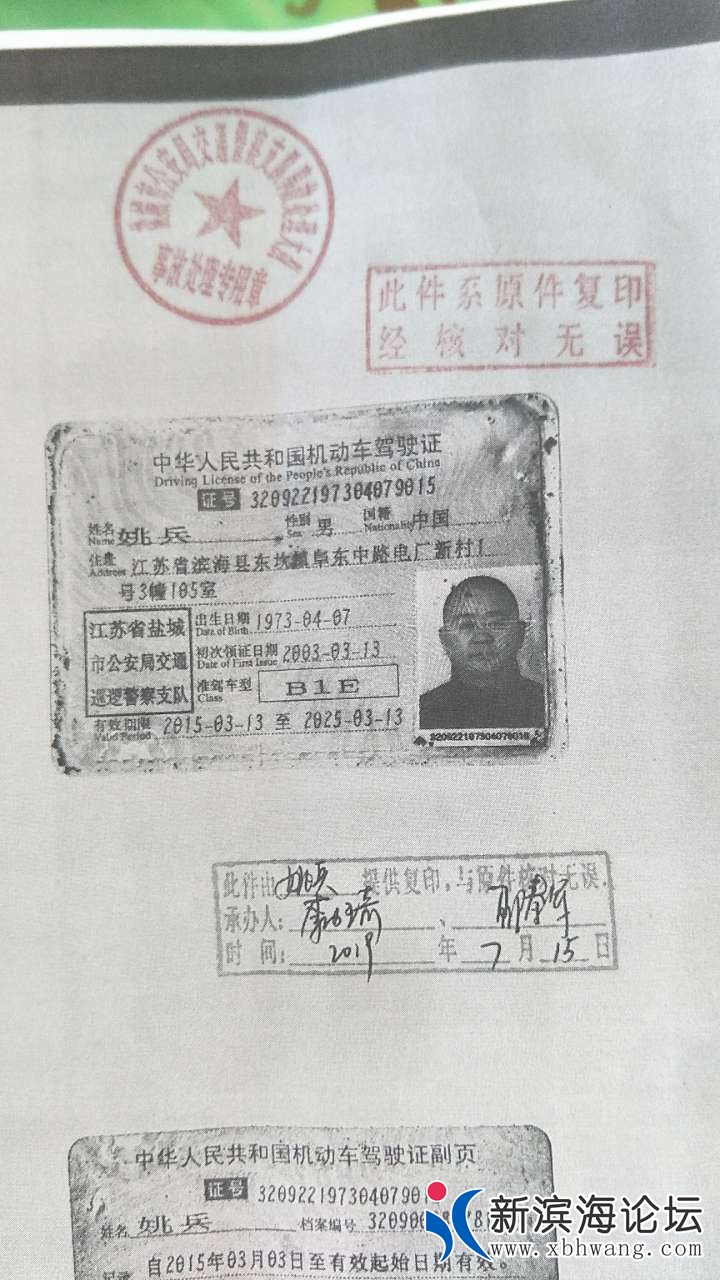 盐城市公安局交通警察支队
事故处理专用章
此件系原件复印
经核对无误
中华人民共和国机动车驾驶证
Driving License of the People's Republic of China
证号 320922197304079015
姓名 Name 姚兵 性别 Sex 男 国籍 Nationality 中国
住址 Address 江苏省滨海县东坎镇阜东中路电厂新村1
号3幢105室
江苏省盐城
市公安局交通
巡逻警察支队
出生日期 Date of Birth 1973-04-07
初次领证日期 Date of First Issue 2003-03-13
准驾车型 Class B1E
有效期限 Valid Period 2015-03-13 至 2025-03-13
320922197304079015
此件由姚兵提供复印,与原件核对无误.
承办人: 、
时间: 2019 年 7 月 15 日
中华人民共和国机动车驾驶证副页
证号 32092219730407901
姓名 姚兵 档案编号 32090
自2015年03月03日至有效起始日期有效。
记录
新滨海论坛
www.xbhwang.com